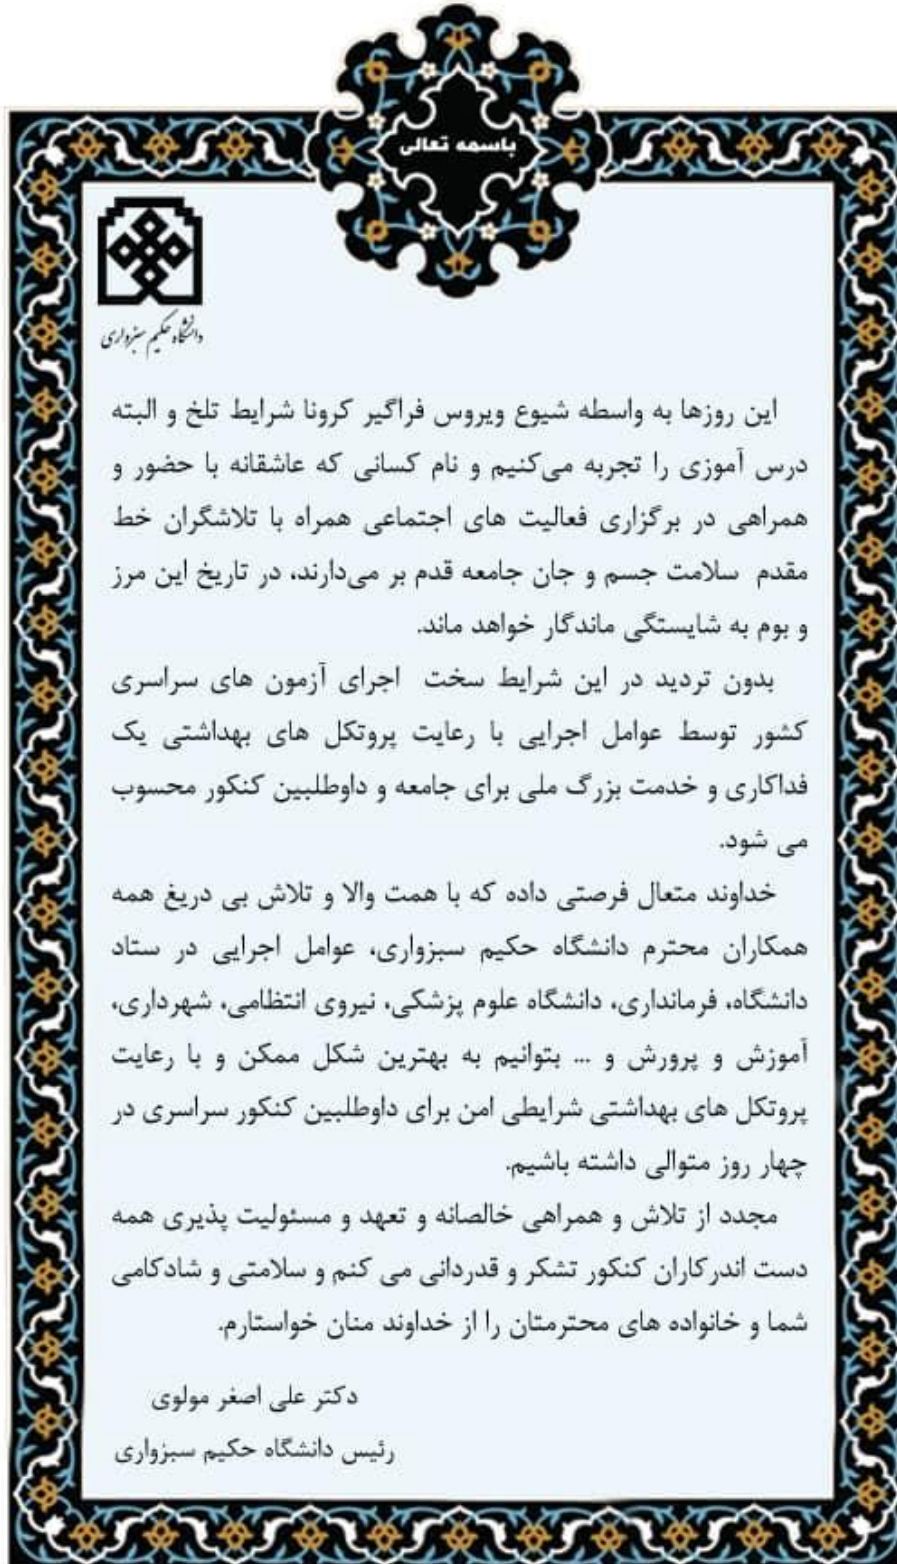 باسمه تعالی
دانشگاه حکیم سبزواری
این روزها به واسطه شیوع ویروس فراگیر کرونا شرایط تلخ و البته
درس آموزی را تجربه می‌کنیم و نام کسانی که عاشقانه با حضور و
همراهی در برگزاری فعالیت های اجتماعی همراه با تلاشگران خط
مقدم سلامت جسم و جان جامعه قدم بر می‌دارند، در تاریخ این مرز
و بوم به شایستگی ماندگار خواهد ماند.
بدون تردید در این شرایط سخت اجرای آزمون های سراسری
کشور توسط عوامل اجرایی با رعایت پروتکل های بهداشتی یک
فداکاری و خدمت بزرگ ملی برای جامعه و داوطلبین کنکور محسوب
می شود.
خداوند متعال فرصتی داده که با همت والا و تلاش بی دریغ همه
همکاران محترم دانشگاه حکیم سبزواری، عوامل اجرایی در ستاد
دانشگاه، فرمانداری، دانشگاه علوم پزشکی، نیروی انتظامی، شهرداری،
آموزش و پرورش و ... بتوانیم به بهترین شکل ممکن و با رعایت
پروتکل های بهداشتی شرایطی امن برای داوطلبین کنکور سراسری در
چهار روز متوالی داشته باشیم.
مجدد از تلاش و همراهی خالصانه و تعهد و مسئولیت پذیری همه
دست اندرکاران کنکور تشکر و قدردانی می کنم و سلامتی و شادکامی
شما و خانواده های محترمتان را از خداوند منان خواستارم.
دکتر علی اصغر مولوی
رئیس دانشگاه حکیم سبزواری